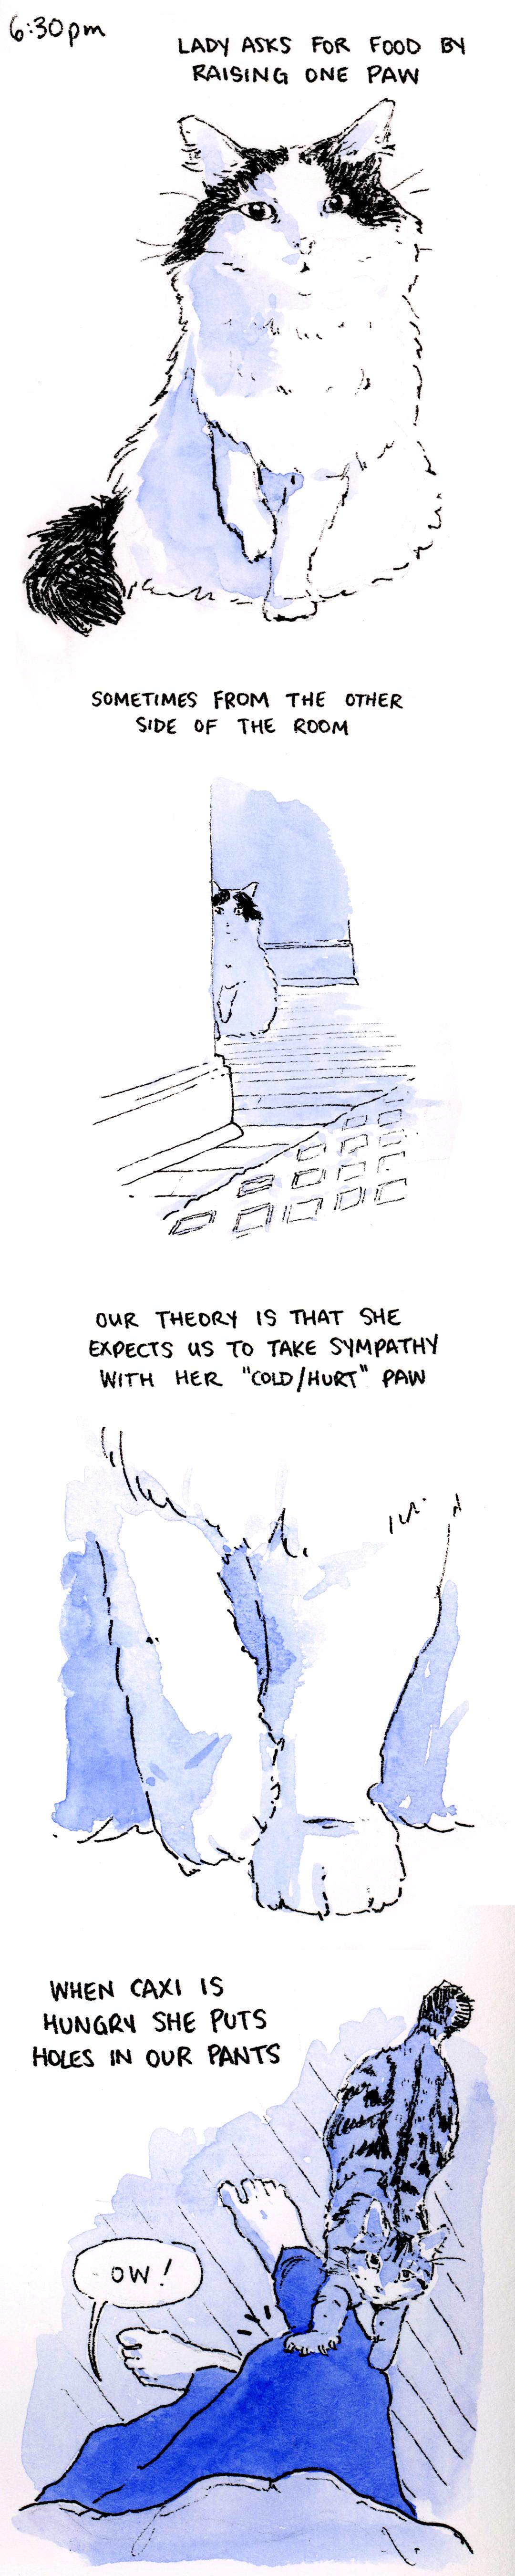 6:30pm
LADY ASKS FOR FOOD BY
RAISING ONE PAW
SOMETIMES FROM THE OTHER
SIDE OF THE ROOM
OUR THEORY IS THAT SHE
EXPECTS US TO TAKE SYMPATHY
WITH HER "COLD/HURT" PAW
WHEN CAXI IS
HUNGRY SHE PUTS
HOLES IN OUR PANTS
OW!